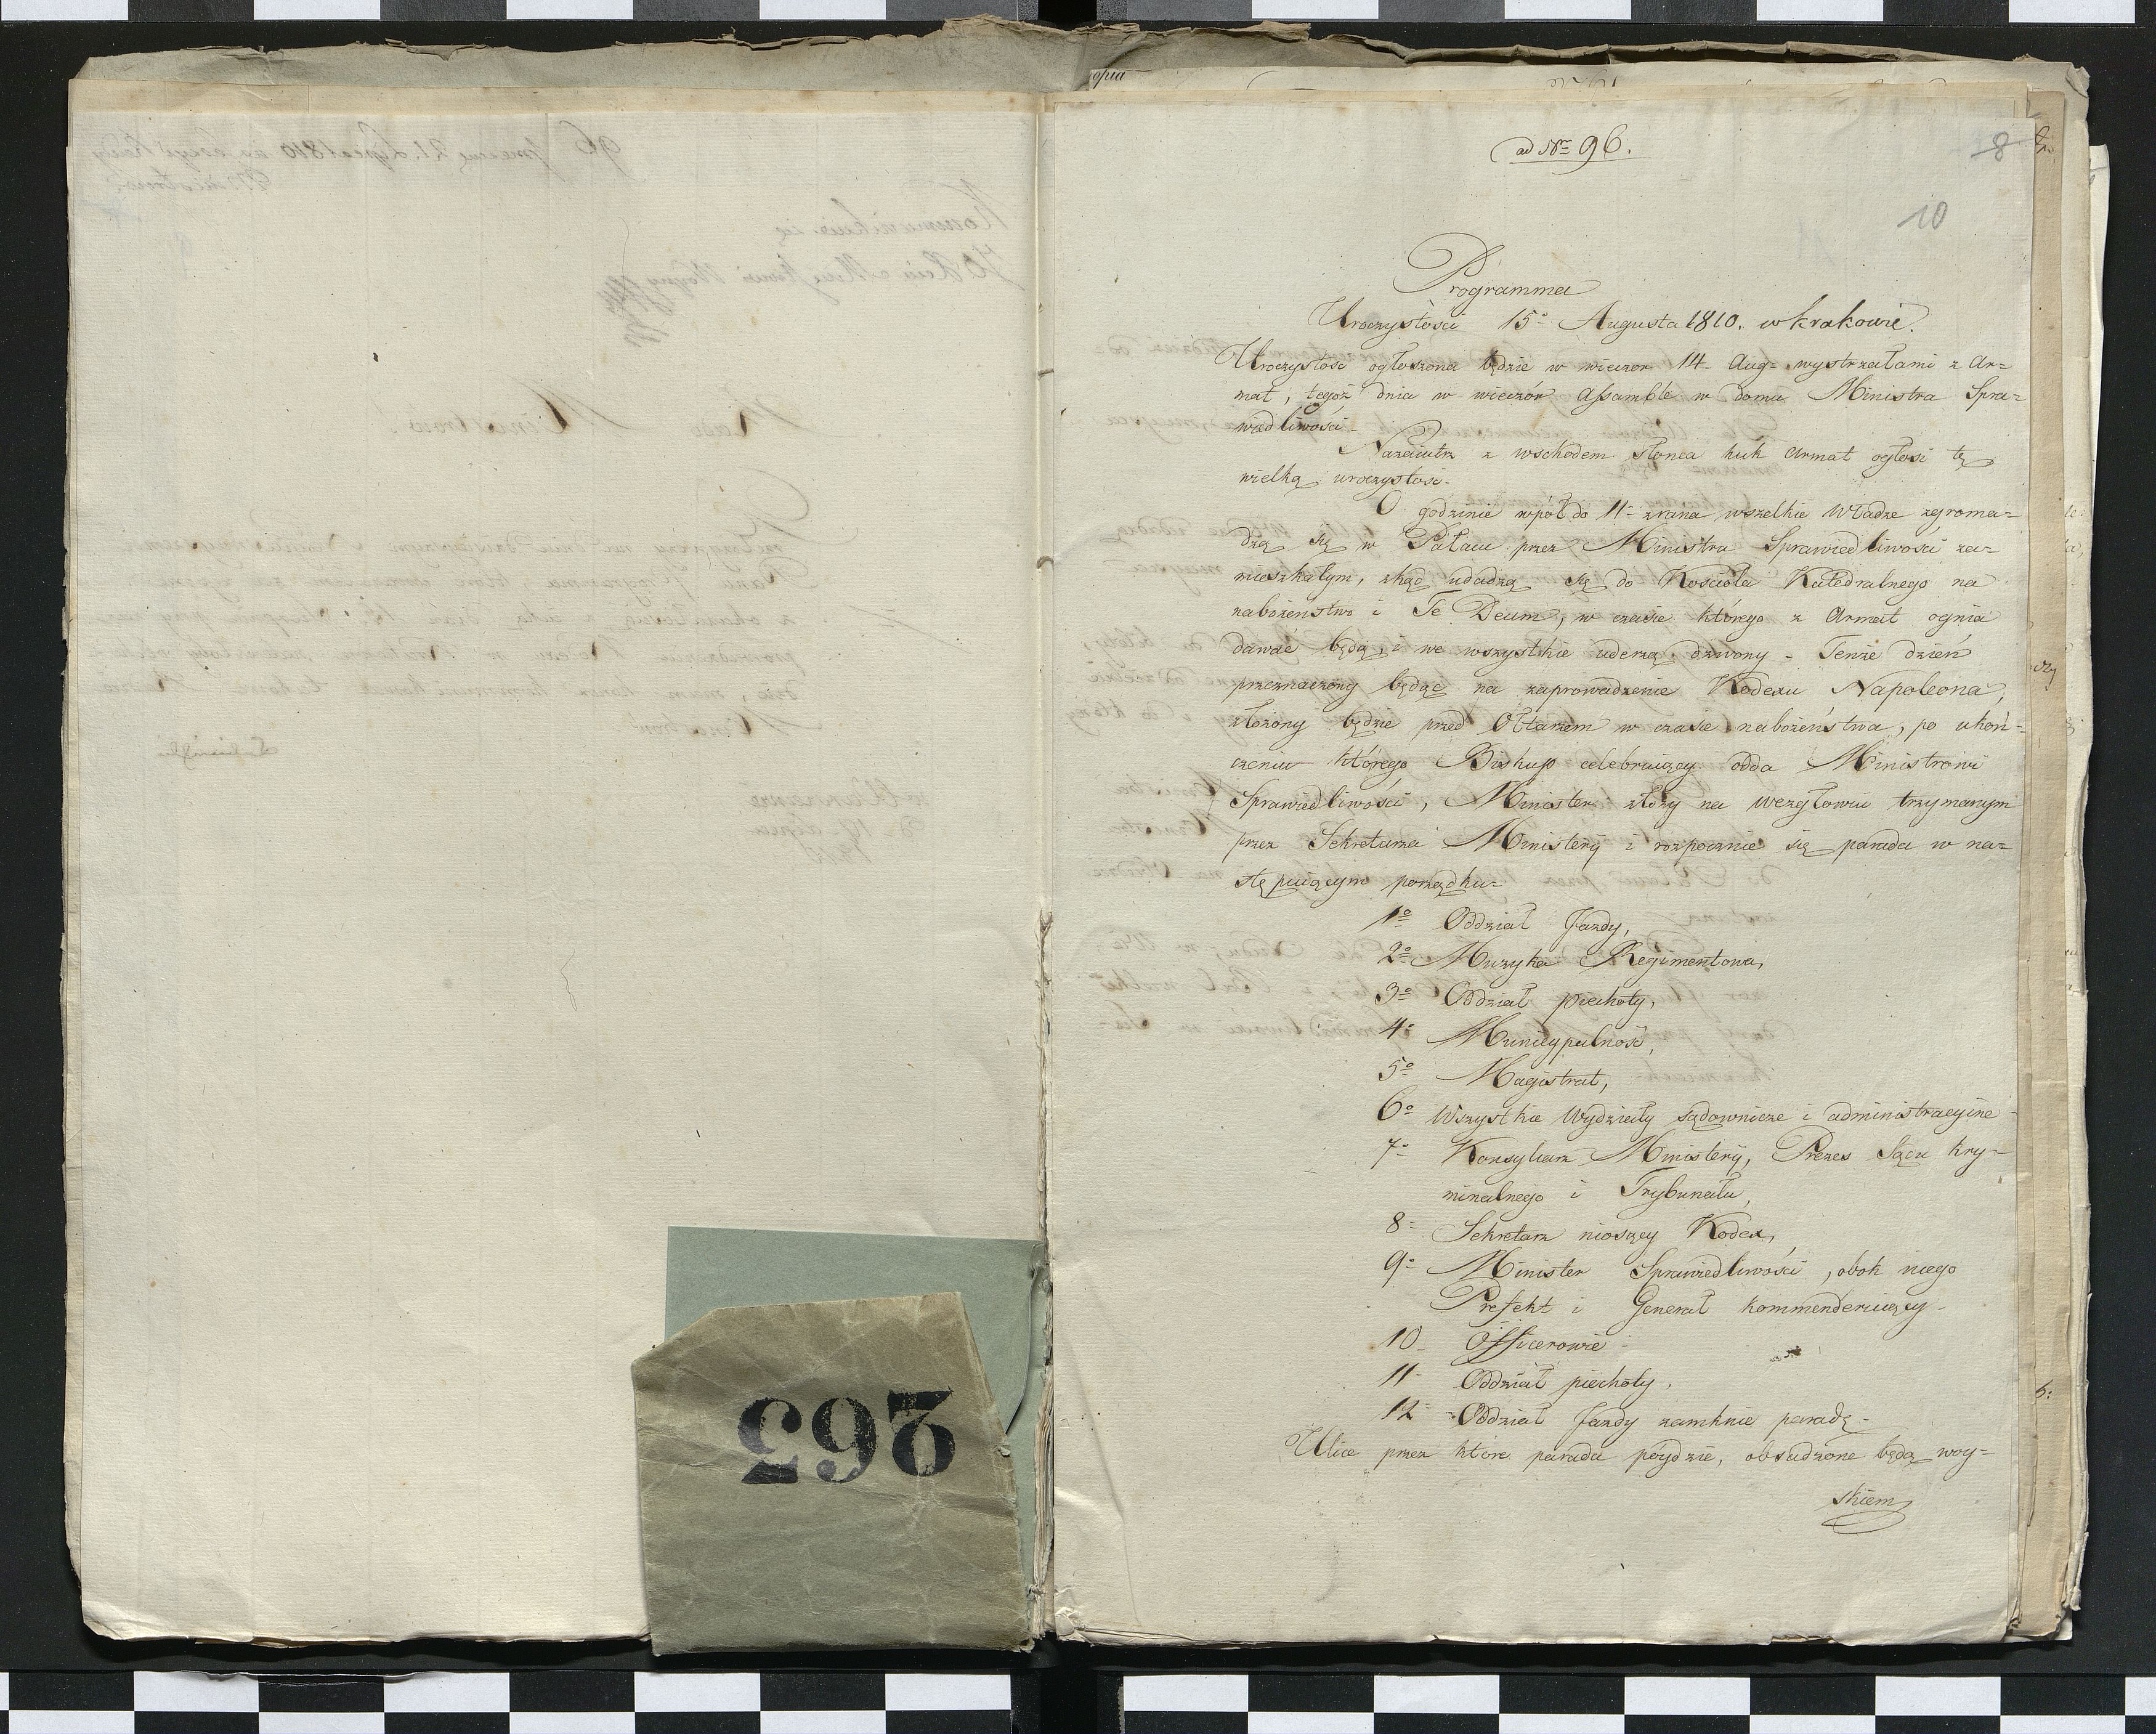 ad Nrm 96.
8
10
Programma
Uroczystości 15º Augusta 1810. w Krakowie.
Uroczystość ogłoszona będzie w wieczor 14. Aug= wystrzałami z Ar=
mat, tegoż dnia w wieczór Assamble w domu Ministra Spra=
wiedliwości.
Nazaiutrz z wschodem słońca huk Armat ogłosi tę
wielką uroczystość.
O godzinie wpół do 11= zrana wszelkie Władze zgroma=
dzą się w Pałacu przez Ministra Sprawiedliwości za=
mieszkałym, zkąd udadzą się do Kościoła Katedralnego na
nabożeństwo i Te Deum, w czasie którego z Armat ognia
dawać będą, i we wszystkie uderzą dzwony - Tenże dzień
przeznaczony będąc na zaprowadzenie Kodexu Napoleona,
złożony będzie przed Ołtarzem w czasie nabożeństwa, po ukoń=
czeniu którego Biskup celebruiący odda Ministrowi
Sprawiedliwości, Minister złoży na wezgłowiu trzymanym
przez Sekretarza Ministerij i rozpocznie się parada w na=
stępuiącym porządku=
1º Oddział Jazdy,
2º Muzyka Regimentowa,
3º Oddział piechoty,
4º Municypalność,
5º Magistrat,
6º Wszystkie Wydziały sądownicze i administracyine -
7º Konsyliarz Ministerij, Prezes Sądu kry=
minalnego i Trybunału,
8= Sekretarz niosący Kodex,
9= Minister Sprawiedliwości, obok niego
Prefekt i Generał kommenderuiący -
10_ Officerowie -
11- Oddział piechoty,
12- Oddział Jazdy zamknie paradę -
Ulice przez które parada póydzie, obsadzone będą woy=
skiem
263